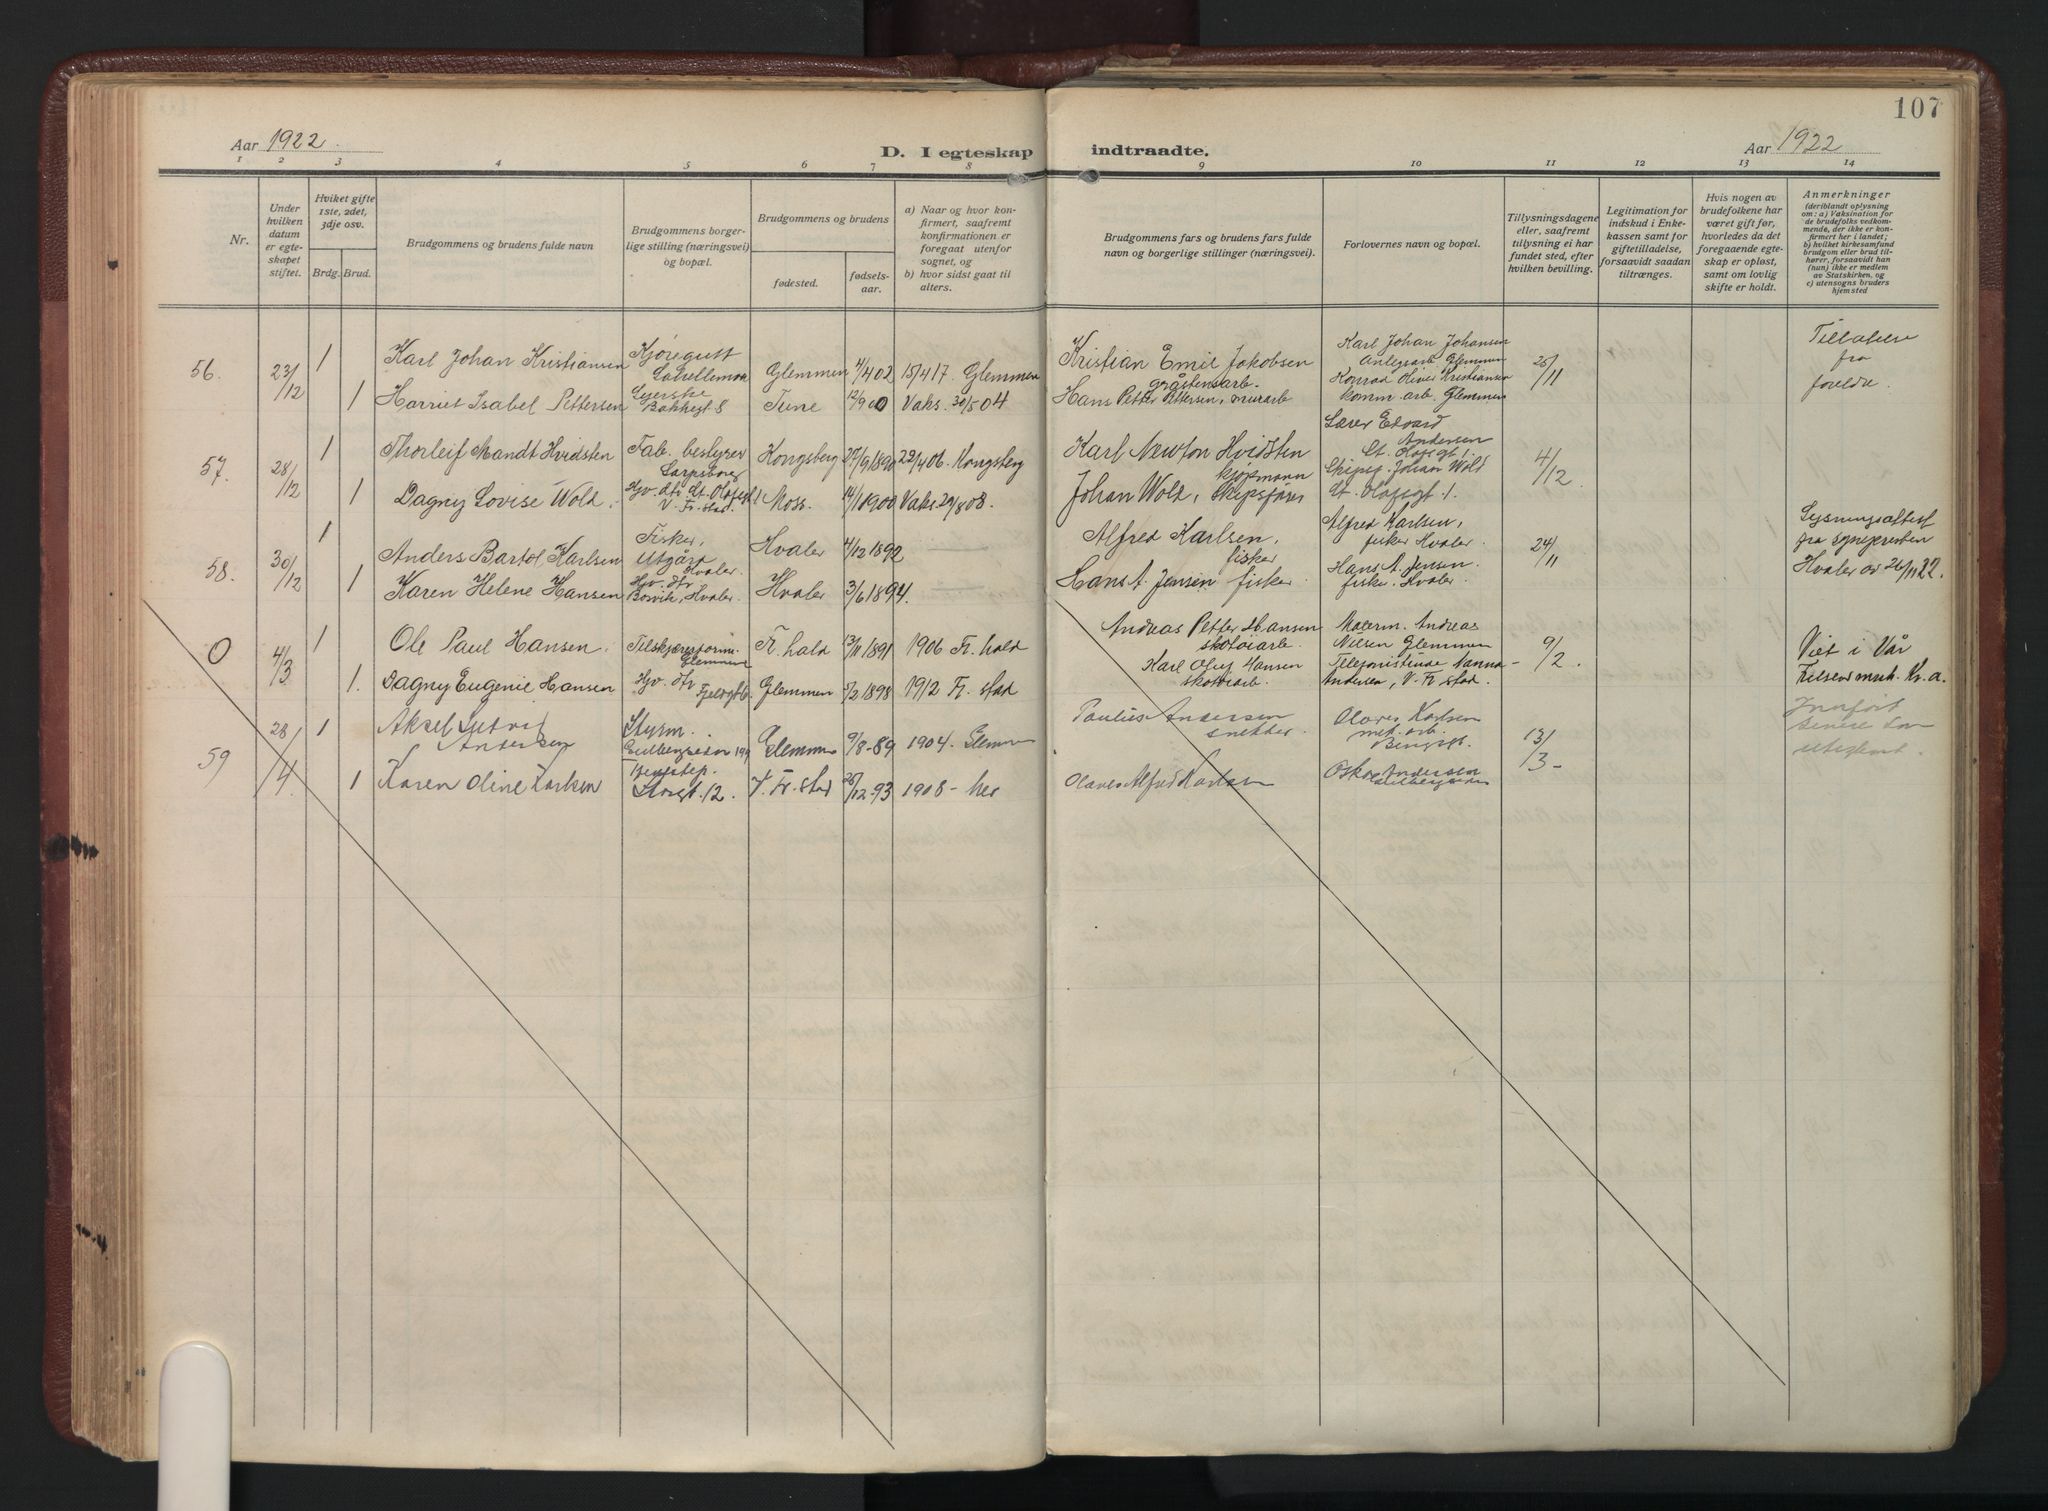 107
Aar 1922.
D. I egteskap indtraadte.
Aar 1922
1 2 3 4 5 6 7 8 9 10 11 12 13 14
Nr.
Under hvilken datum er egteskapet stiftet.
Hvilket gifte 1ste, 2det, 3dje osv.
Brdg. Brud.
Brudgommens og brudens fulde navn
Brudgommens borgerlige stilling (næringsvei) og bopæl.
Brudgommens og brudens
fødested. fødselsaar.
a) Naar og hvor konfirmert, saafremt konfirmationen er foregaat utenfor sognet, og
b) hvor sidst gaat til alters.
Brudgommens fars og brudens fars fulde navn og borgerlige stillinger (næringsvei).
Forlovernes navn og bopæl.
Tillysningsdagene eller, saafremt tillysning ei har fundet sted, efter hvilken bevilling.
Legitimation for indskud i Enkekassen samt for giftetilladelse, forsaavidt saadan tiltrænges.
Hvis nogen av brudefolkene har været gift før, hvorledes da det foregaaende egteskap er opløst, samt om lovlig skifte er holdt.
Anmerkninger
(deriblandt oplysning om: a) Vaksination for de brudefolks vedkommende, der ikke er konfirmert her i landet; b) hvilket kirkesamfund brudgom eller brud tilhører, forsaavidt han (hun) ikke er medlem av Statskirken, og c) utensogns bruders hjemsted
56. 23/12 1 Karl Johan Kristiansen Kjøregutt Glemmen 4/4 02 15/4 17. Glemmen Kristian Emil Jakobsen gråstensarb. Karl Johan Johansen Glemmen 25/11 Tillatelse fra foreldr.
1 Harriet Isabel Pettersen Syerske Bakkegt 8 Tune 12/9 00 Vaks. 30/5 04 Hans Petter Pettersen, murarb. Konrad Oliver Kristiansen komm. arb. Glemmen
57. 28/12 1 Thorleif Mandt Hvidsten Fab. bestyrer Sarpsborg Kongsberg 27/9 1890 29/4 06. Kongsberg Karl Newton Hvidsten kjøpmann Lærer Edvard Andersen St. Olafsgt 1. 4/12.
1 Dagny Lovise Wold. Hjv. dtr. St. Olafsgt 1 V. Fr.stad. Moss. 14/1 1900 Vaks. 29/8 08. Johan Wold, Skipsfører Skipsf. Johan Wold St. Olafsgt. 1.
58. 30/12 1 Anders Bartol Karlsen Fisker, Utgård Hvaler. Hvaler 4/12 1892 Alfred Karlsen, fisker Alfred Karlsen, fisker Hvaler. 24/11 Lysningsattest fra sogneprsten Hvaler av 26/11 22.
1 Karen Helene Hansen Hjv. dtr. Hvaler. Hvaler 3/6 1894. Hans A. Jensen fisker. Hans A. Jensen. fisker. Hvaler.
0 4/3 1 Ole Paul Hansen. Glemmen Fr. hald 13/11 1891 1906 Fr. hald Andreas Petter Hansen skotøiarb. Malerm. Andreas Nilsen Glemmen 9/2. Viet i Vår Frelsers Kr.a.
1. Dagny Eugenie Hansen Hjv. dtr. Glemmen 5/2 1898 1912 Fr. stad Karl Oluf Hansen skotøiarb. Telefonistinde Nanna Andersen, V. Fr stad.
59 28/4 1 Aksel Ludvig Andersen Styrm. Glemmen 9/8-89 1904. Glemm Paulus Andersen snekker Olaves Karlsen met. arb. 13/3- Innført
1 Karen Oline Karlsen Storgt. 12. V. Fr. stad 26/12-93 1908 - her Olaves Alfred Karlsen Oskar Andersen